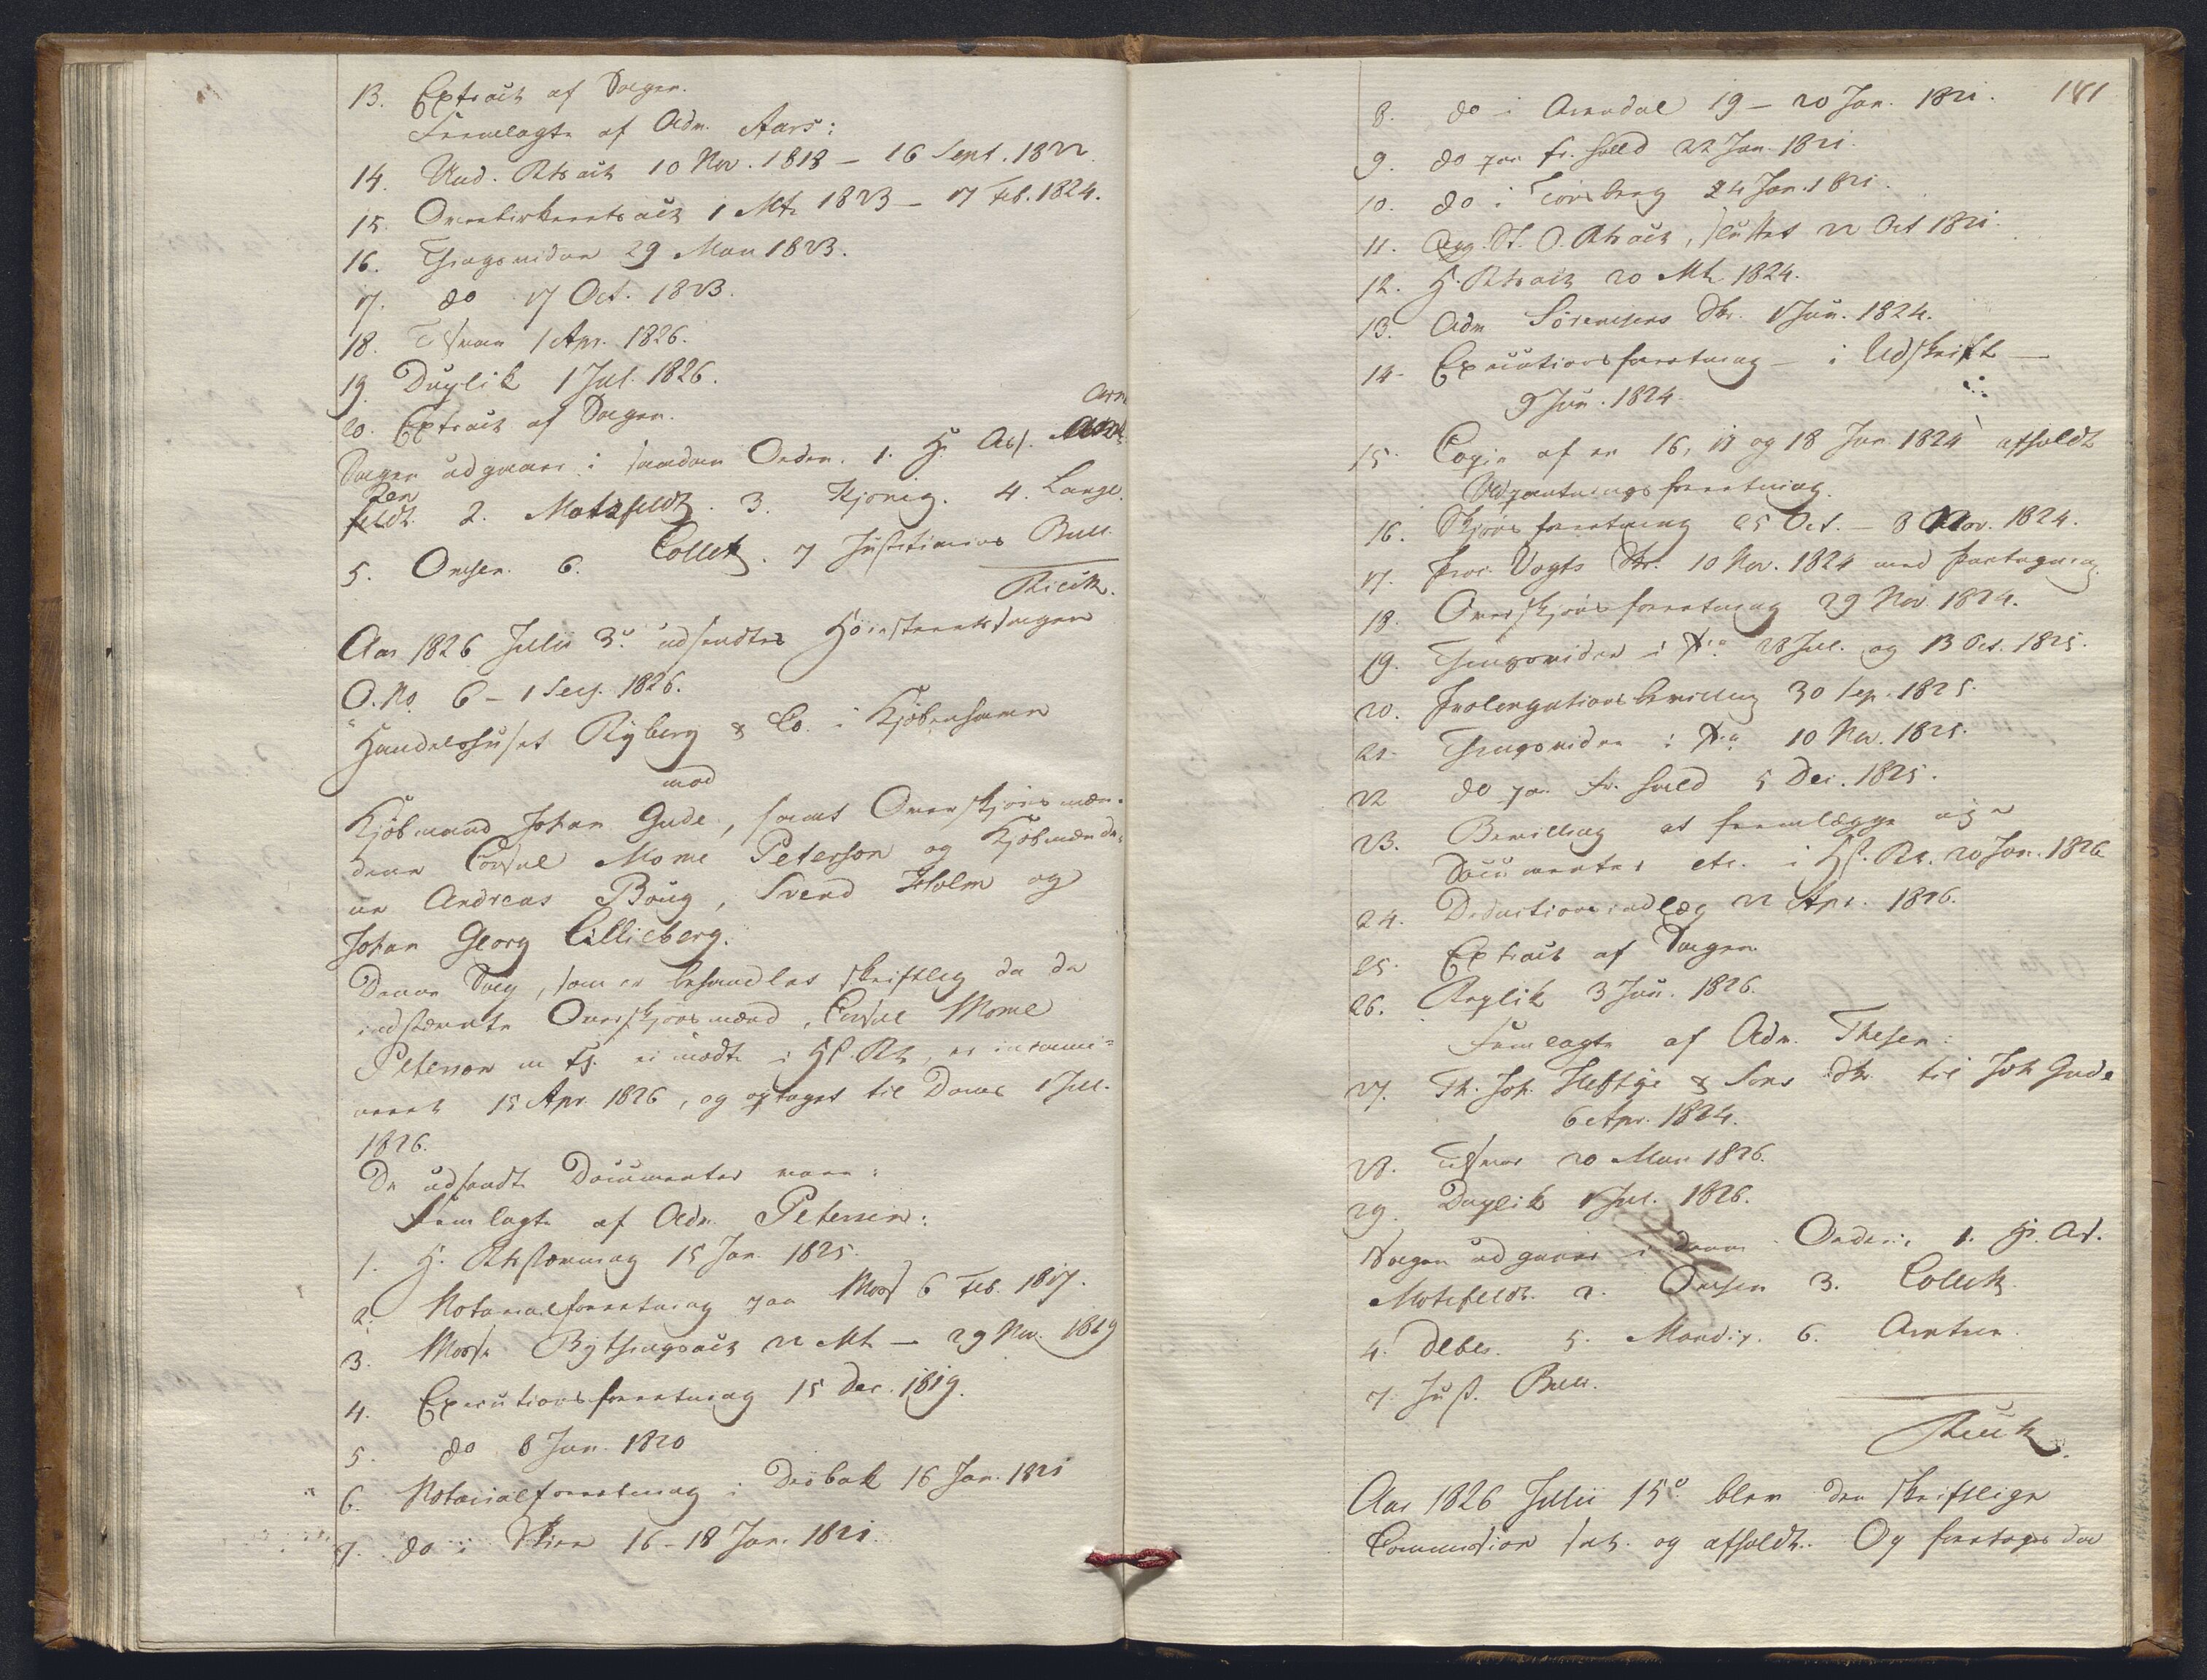 13. Extract af Sagen.
Fremlagte af Adv. Aars:
14. Und. Rts act 10 Nov. 1818 – 16 Sept. 1822.
15. Overbirkeretsact 1 Mts 1823 – 17 Feb. 1824.
16. Thingsvidne 29 Mai 1823.
17. do 17 Oct. 1823.
18. Tilsvar 1 Apr. 1826.
19. Duplik 1 Jul. 1826.
20. Extract af Sagen.
Sagen udgaaer i saadan Orden. 1. Hr Ass. Arn
zen
feldt. 2. Motzfeldt. 3. Kjønig. 4. Lange.
5. Omsen. 6. Collett. 7 Justitiarius Bull.
Rieck.
Aar 1826 Julii 3die udsendtes Høiesteretssagen
O. No. 6 – 1 Sess. 1826.
Handelshuset Ryberg & Co. i Kjøbenhavn
mod
Kjøbmand Johan Gude, samt Overskjønsmæn-
dene Consul Mome Peterson og Kjøbmænde-
ne Andreas Boug, Svend Holm og
Johan Georg Lillieberg.
Denne Sag, som er behandlet skriftlig da de
indstævnte Overskjønsmænd, Consul Mome
Peterson m. fl. ei mødte i HS. Rt, er incami-
neret 15 Apr. 1826, og optaget til Doms 1 Jul.
1826.
De udsendte Documenter vare:
Fremlagte af Adv. Petersen:
1. H. Rtsstævning 15 Jan. 1825.
2. Notarialforretning paa Moss 6 Feb. 1817.
3. Mosse Bythingsact 22 Mts – 29 Nov. 1819
4. Executionsforretning 15 Dec. 1819.
5. do 8 Jan. 1820
6. Notarialforretning i Drøbak 16 Jan. 1821
7. do i Skien 16–18 Jan. 1821.
181
8. do i Arendal 19 – 20 Jan. 1821.
9. do paa Fr. hald 22 Jan. 1821.
10. do i Tønsberg 24 Jan. 1821.
11. Agg. St. O. Rts act, sluttet 22 Oct 1821.
12. H. Rtsact 20 Mts. 1824.
13. Adv. Sørensens Skr. 1 Jun. 1824.
14. Executionsforretning – i Udskrift –
9 Jun. 1824.
15. Copie af en 16, 17 og 18 Jun 1824 afholdt
Udpantningsforretning.
16. Skjønsforretning 25 Oct. – 8 Nov. 1824.
17. Proc. Vogts Skr. 10 Nov. 1824 med Paategning.
18. Overskjønsforretning 29 Nov 1824.
19. Thingsvidne i Xa 28 Jul. og 13 Oct. 1825.
20. Prolongationsbevilling 30 Sep. 1825.
21. Thingsvidne i Xa 10 Nov. 1825.
22 do paa Fr. hald 5 Dec. 1825.
23. Bevilling at fremlægge nye
Documenter etc. i HS. Rt. 20 Jan. 1826
24. Deductionsindlæg 22 Apr. 1826.
25. Extract af Sagen.
26. Replik 3 Jun. 1826.
Fremlagte af Adv. Thesen:
27. Th. Joh. Heftye & Søns Skr. til Joh Gude
6 Apr. 1824.
28. Tilsvar 20 Mai 1826.
29. Duplik 1 Jul. 1826.
Sagen udgaaer i denne Orden: 1. Hr. As.
Motzfeldt. 2. Omsen 3. Collett
4. Debes. 5. Mandix. 6. Arntzen.
7. Just. Bull.
Rieck.
Aar 1826 Julii 15de blev den skriftlige
Commission sat og afholdt. Og foretoges da